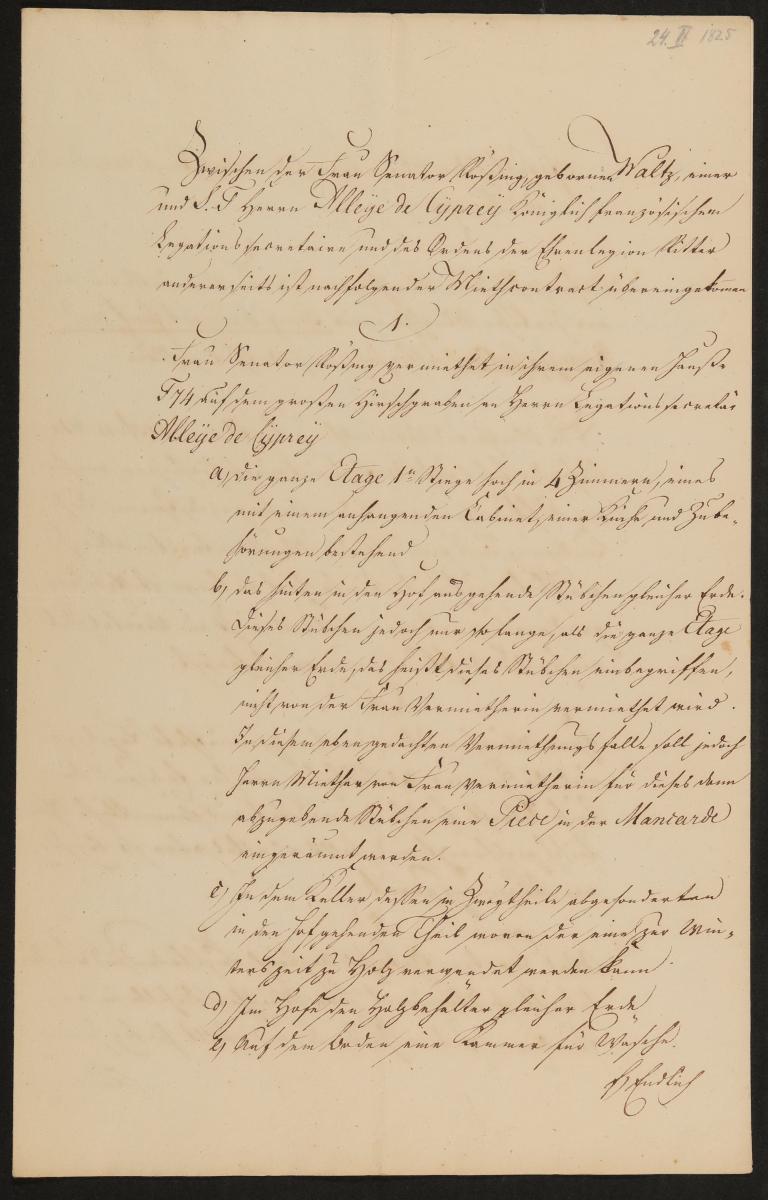 24. II 1825
Zwischen der Frau Senator Roßing, gebornen Waltz, einer
und S. T Herrn Alleÿe de Cÿpreÿ Königlich französischem
Legations secretaire und des Ordens der Ehrenlegion Ritter
andererseits ist nachfolgender Miethcontract übereingekommen
1.
Frau Senator Roßing vermiethet in ihrem eigenen Hauße
F 74 auf dem großen Hirschgraben an Herrn Legations secretär
Alleÿe de Cÿpreÿ
a, die ganze Etage 1n Stiege hoch in 4 Zimmern, eines
mit einem anhangenden Cabinet, einer Küche und Zube-
hörungen bestehend
b, das hinten in den Hof ausgehende Stübchen gleicher Erde.
Dieses Stübchen jedoch nur so lange, als die ganze Etage
gleicher Erde, das heißt, dieses Stübchen einbegriffen,
nicht von der Frau Vermietherin vermiethet wird.
In diesem eben gedachten Vermiethungsfalle soll jedoch
Herrn Miether von Frau Vermietherin für dieses dann
abzugebende Stübchen eine Piece in der Mancarde
eingeräumt werden.
c, In dem Keller dessen in Zweÿ theile abgesonderten
in den Hof gehenden Theil wovon der eine zur Win-
terszeit zu Holz verwendet werden kann.
d, Im Hofe den Holzbehälter gleicher Erde
e, Auf dem Boden eine Kammer für Wäsche.
f, Endlich